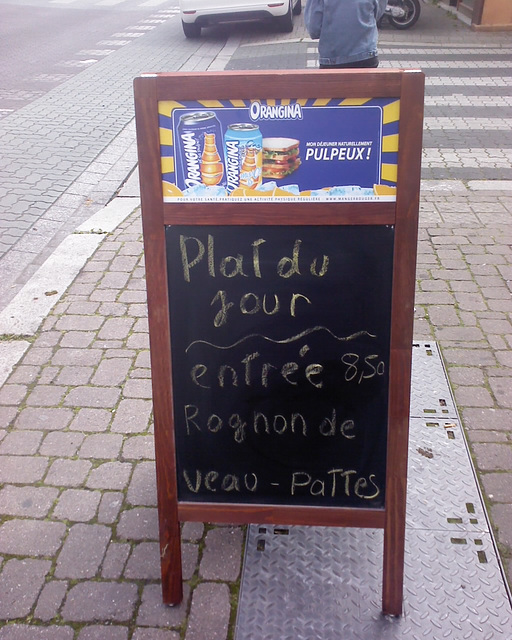 ORANGINA
ORANGINA
ORANGINA
MON DÉJEUNER NATURELLEMENT
PULPEUX !
POUR VOTRE SANTÉ, PRATIQUEZ UNE ACTIVITÉ PHYSIQUE RÉGULIÈRE. WWW.MANGERBOUGER.FR
Plat du
jour
entrée 8,50
Rognon de
veau - pattes